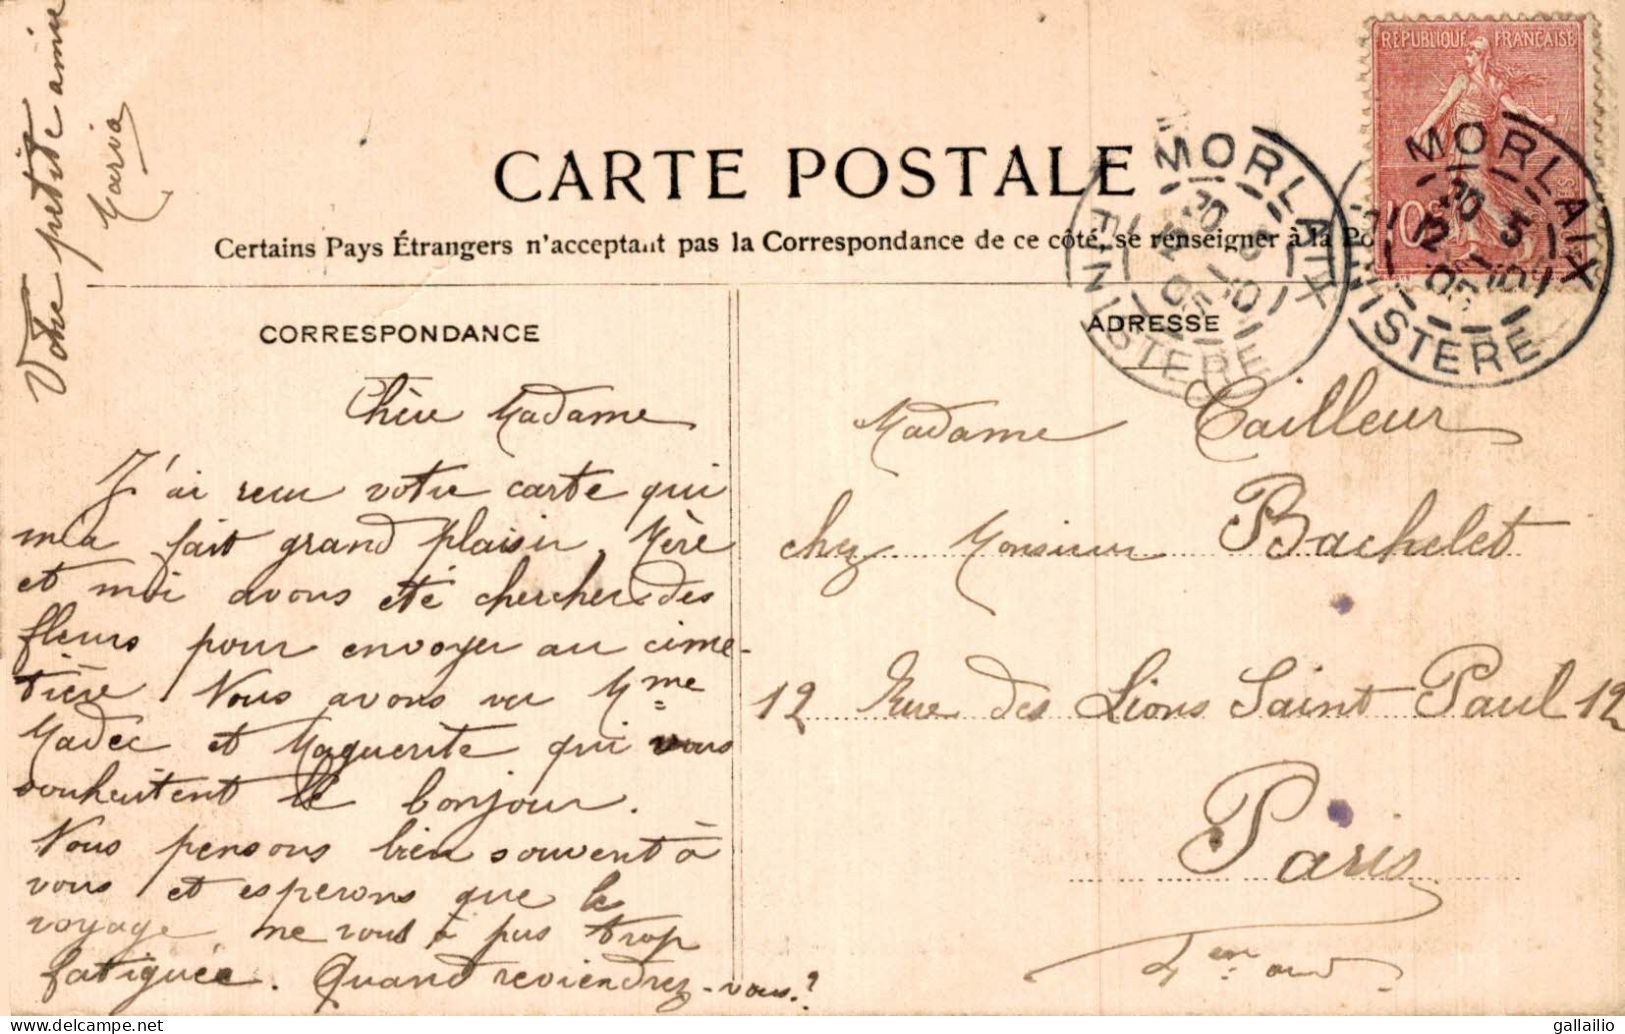 Votre petite amie
Maria
CARTE POSTALE
Certains Pays Étrangers n'acceptant pas la Correspondance de ce côté, se renseigner à la Po
CORRESPONDANCE
Chère Madame
J'ai reçu votre carte qui
m'a fait grand plaisir, Mère
et moi avons été chercher des
fleurs pour envoyer au cime-
tière Nous avons vu Mme
Madec et Maguerite qui vous
souhaitent le bonjour.
Nous pensons bien souvent à
vous et esperons que le
voyage ne vous à pas trop
fatiguée. Quand reviendrez-vous?
ADRESSE
Madame Cailleur
chez Monsieur Bachelet
12 Rue des Lions Saint Paul 12
Paris
4em
REPUBLIQUE FRANÇAISE
10c
MORLAIX
FINISTERE
MORLAIX
12 5
05
FINISTERE
gallailio
delcampe.net